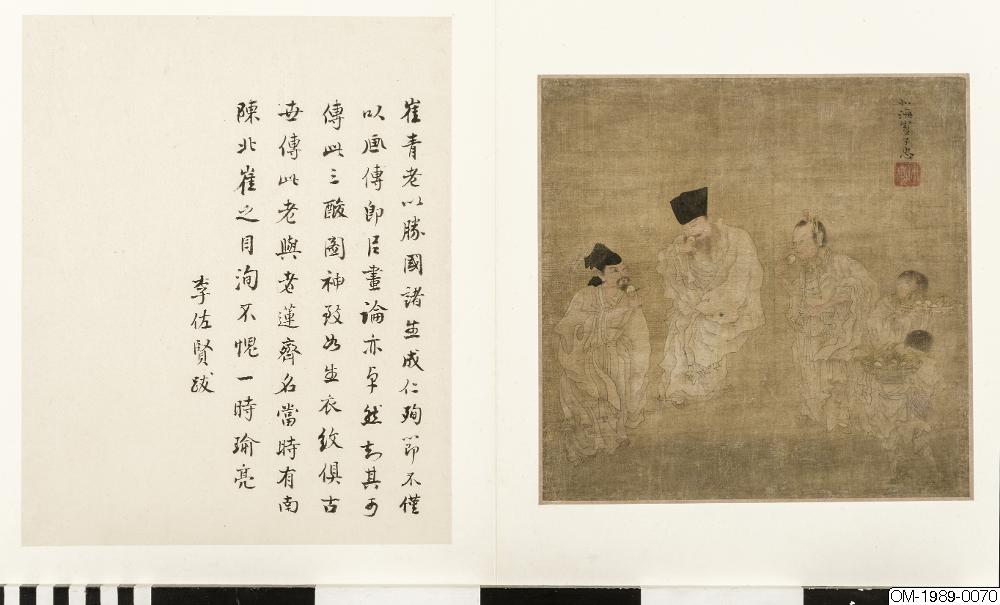 崔青老以勝國諸生成仁殉節不僅
以画傳即占畫論亦卓然知其可
傳此三酸圖神致如生衣紋俱古
世傳此老與老蓮齊名當時有南
陳北崔之目洵不愧一時瑜亮
李佐賢跋
北海崔子忠
OM-1989-0070